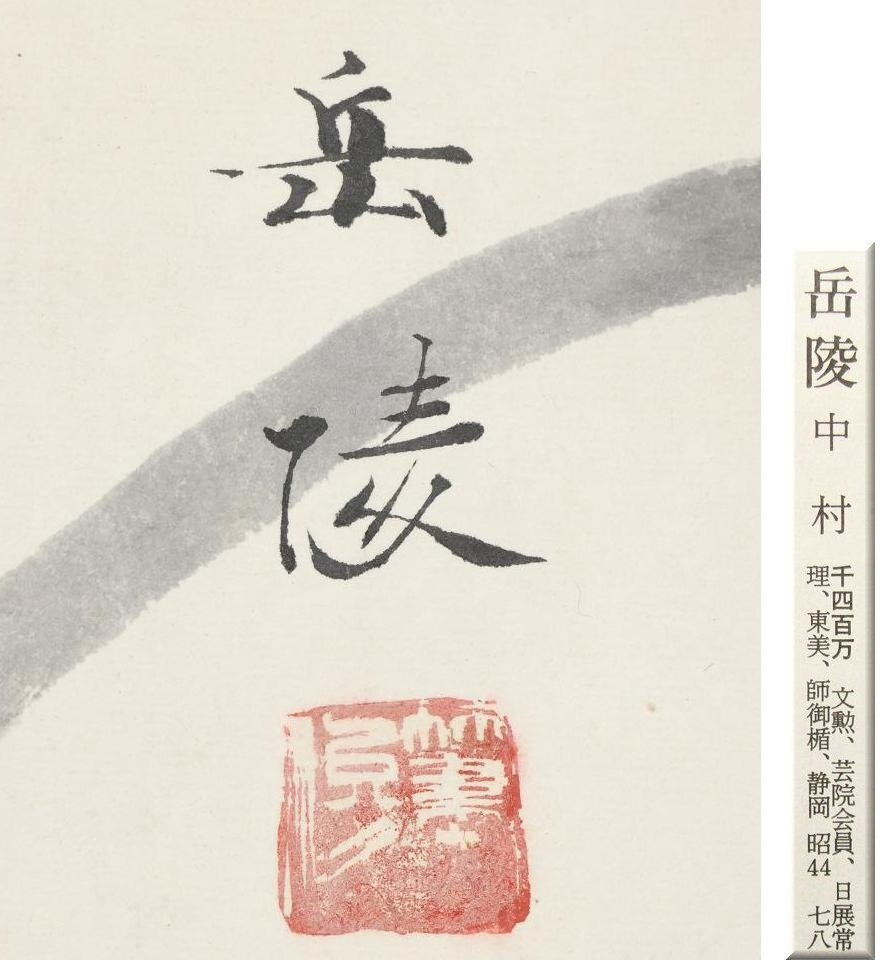 岳陵
岳陵 中村
千四百万 文勲、芸院会員、日展常
理、東美、師御楯、静岡 昭44 七八